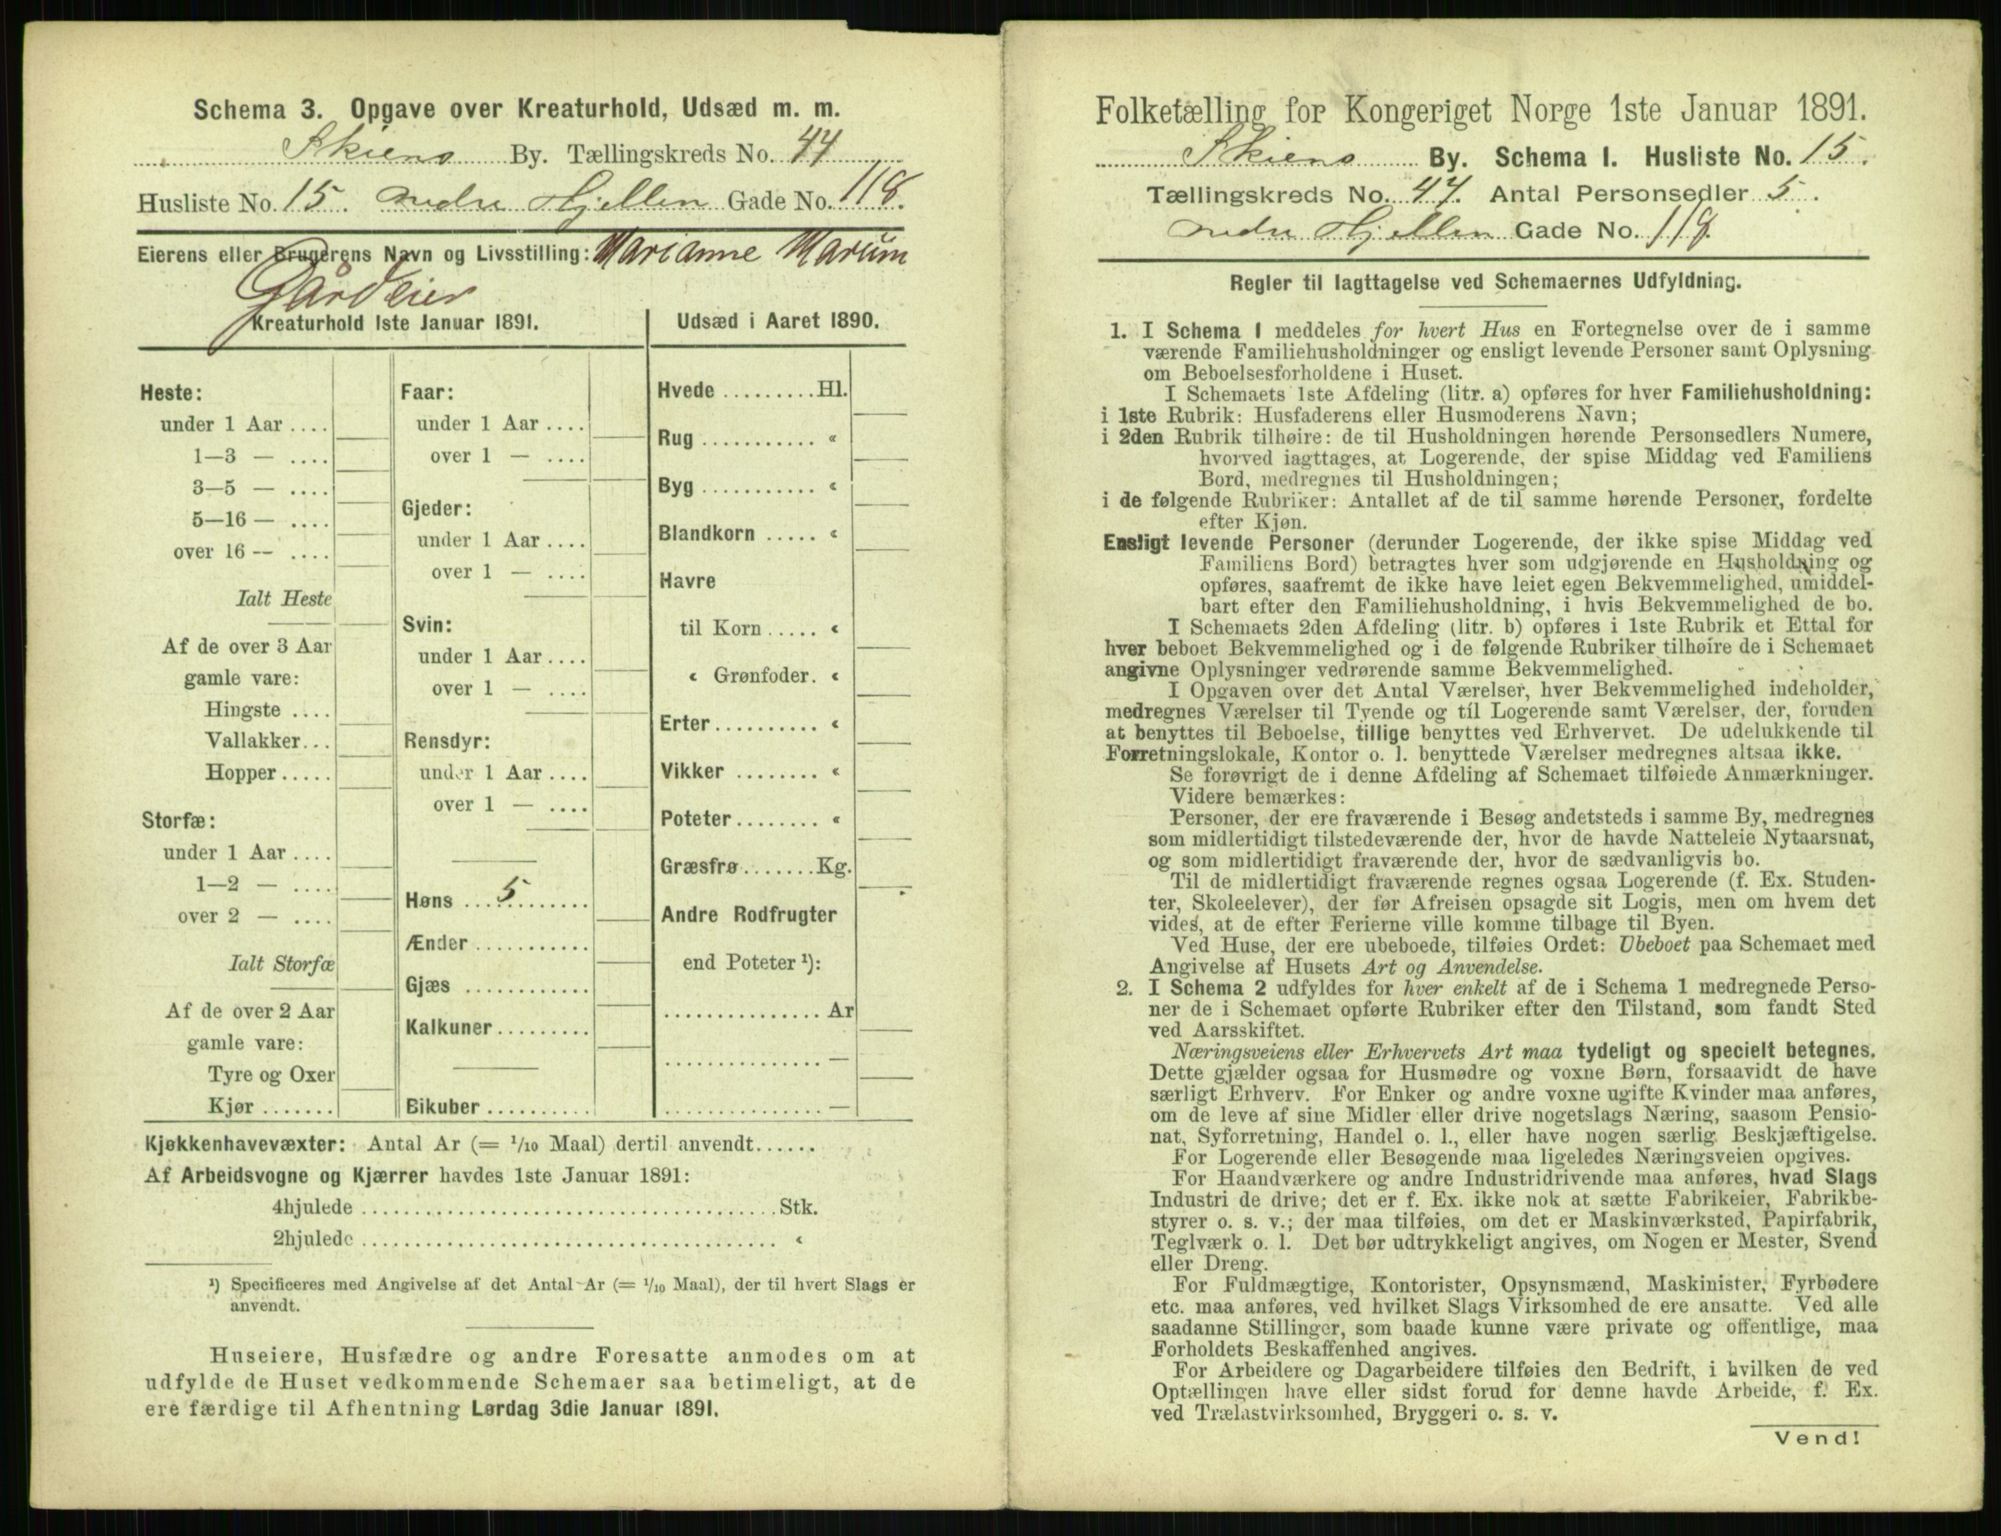 Schema 3. Opgave over Kreaturhold, Udsæd m. m.
Skiens By. Tællingskreds No. 44
Husliste No. 15. Nedre Hjellen Gade No. 118.
Eierens eller Brugerens Navn og Livsstilling: Marianne Marum
Gårdeier
Kreaturhold 1ste Januar 1891.
Heste:
under 1 Aar ....
1—3 — ....
3—5 — ....
5—16 — ....
over 16 -- ....
Ialt Heste
Af de over 3 Aar
gamle vare:
Hingste ....
Vallakker...
Hopper.....
Storfæ:
under 1 Aar ....
1—2 — ....
over 2 — ....
Ialt Storfæ
Af de over 2 Aar
gamle vare:
Tyre og Oxer
Kjør .......
Faar:
under 1 Aar ....
over 1 — ....
Gjeder:
under 1 Aar ....
over 1 — ....
Svin:
under 1 Aar ....
over 1 — ....
Rensdyr:
under 1 Aar ....
over 1 — ....
Høns ... 5
Ænder ...........
Gjæs ............
Kalkuner.........
Bikuber..........
Udsæd i Aaret 1890.
Hvede .........Hl.
Rug ........... «
Byg ........... «
Blandkorn ..... «
Havre
til Korn ..... «
« Grønfoder. «
Erter.......... «
Vikker ........ «
Poteter........ «
Græsfrø.......Kg.
Andre Rodfrugter
end Poteter ¹):
...............Ar
...............—
...............—
Kjøkkenhavevæxter: Antal Ar (= 1/10 Maal) dertil anvendt......
Af Arbeidsvogne og Kjærrer havdes 1ste Januar 1891:
4hjulede ........................................Stk.
2hjulede ........................................ «
¹) Specificeres med Angivelse af det Antal Ar (= 1/10 Maal), der til hvert Slags er
anvendt.
Huseiere, Husfædre og andre Foresatte anmodes om at
udfylde de Huset vedkommende Schemaer saa betimeligt, at de
ere færdige til Afhentning Lørdag 3die Januar 1891.
Folketælling for Kongeriget Norge 1ste Januar 1891.
Skiens By. Schema 1. Husliste No. 15.
Tællingskreds No. 44. Antal Personsedler 5.
Nedre Hjellen Gade No. 118.
Regler til Iagttagelse ved Schemaernes Udfyldning.
1. I Schema 1 meddeles for hvert Hus en Fortegnelse over de i samme
værende Familiehusholdninger og ensligt levende Personer samt Oplysning
om Beboelsesforholdene i Huset.
I Schemaets 1ste Afdeling (litr. a) opføres for hver Familiehusholdning:
i 1ste Rubrik: Husfaderens eller Husmoderens Navn;
i 2den Rubrik tilhøire: de til Husholdningen hørende Personsedlers Numere,
hvorved iagttages, at Logerende, der spise Middag ved Familiens
Bord, medregnes til Husholdningen;
i de følgende Rubriker: Antallet af de til samme hørende Personer, fordelte
efter Kjøn.
Ensligt levende Personer (derunder Logerende, der ikke spise Middag ved
Familiens Bord) betragtes hver som udgjørende en Husholdning og
opføres, saafremt de ikke have leiet egen Bekvemmelighed, umiddel-
bart efter den Familiehusholdning, i hvis Bekvemmelighed de bo.
I Schemaets 2den Afdeling (litr. b) opføres i 1ste Rubrik et Ettal for
hver beboet Bekvemmelighed og i de følgende Rubriker tilhøire de i Schemaet
angivne Oplysninger vedrørende samme Bekvemmelighed.
I Opgaven over det Antal Værelser, hver Bekvemmelighed indeholder,
medregnes Værelser til Tyende og til Logerende samt Værelser, der, foruden
at benyttes til Beboelse, tillige benyttes ved Erhvervet. De udelukkende til
Forretningslokale, Kontor o. l. benyttede Værelser medregnes altsaa ikke.
Se forøvrigt de i denne Afdeling af Schemaet tilføiede Anmærkninger.
Videre bemærkes:
Personer, der ere fraværende i Besøg andetsteds i samme By, medregnes
som midlertidigt tilstedeværende der, hvor de havde Natteleie Nytaarsnat,
og som midlertidigt fraværende der, hvor de sædvanligvis bo.
Til de midlertidigt fraværende regnes ogsaa Logerende (f. Ex. Studen-
ter, Skoleelever), der før Afreisen opsagde sit Logis, men om hvem det
vides, at de efter Ferierne ville komme tilbage til Byen.
Ved Huse, der ere ubeboede, tilføies Ordet: Ubeboet paa Schemaet med
Angivelse af Husets Art og Anvendelse.
2. I Schema 2 udfyldes for hver enkelt af de i Schema 1 medregnede Perso-
ner de i Schemaet opførte Rubriker efter den Tilstand, som fandt Sted
ved Aarsskiftet.
Næringsveiens eller Erhvervets Art maa tydeligt og specielt betegnes.
Dette gjælder ogsaa for Husmødre og voxne Børn, forsaavidt de have
særligt Erhverv. For Enker og andre voxne ugifte Kvinder maa anføres,
om de leve af sine Midler eller drive nogetslags Næring, saasom Pensio-
nat, Syforretning, Handel o. l., eller have nogen særlig Beskjæftigelse.
For Logerende eller Besøgende maa ligeledes Næringsveien opgives.
For Haandværkere og andre Industridrivende maa anføres, hvad Slags
Industri de drive; det er f. Ex. ikke nok at sætte Fabrikeier, Fabrikbe-
styrer o. s. v.; der maa tilføies, om det er Maskinværksted, Papirfabrik,
Teglværk o. l. Det bør udtrykkeligt angives, om Nogen er Mester, Svend
eller Dreng.
For Fuldmægtige, Kontorister, Opsynsmænd, Maskinister, Fyrbødere
etc. maa anføres, ved hvilket Slags Virksomhed de ere ansatte. Ved alle
saadanne Stillinger, som baade kunne være private og offentlige, maa
Forholdets Beskaffenhed angives.
For Arbeidere og Dagarbeidere tilføies den Bedrift, i hvilken de ved
Optællingen have eller sidst forud for denne havde Arbeide, f. Ex.
ved Trælastvirksomhed, Bryggeri o. s. v.
Vend!